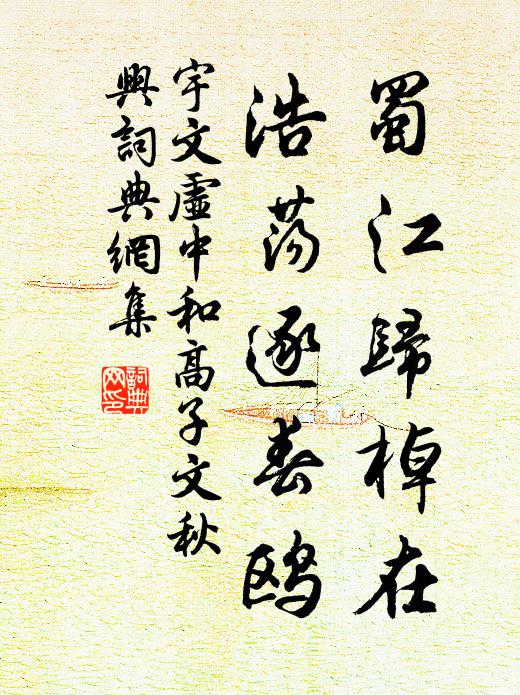 蜀江歸棹在
浩蕩逐春鷗
宇文虛中和高子文秋
興詞典網集
詞典
网印